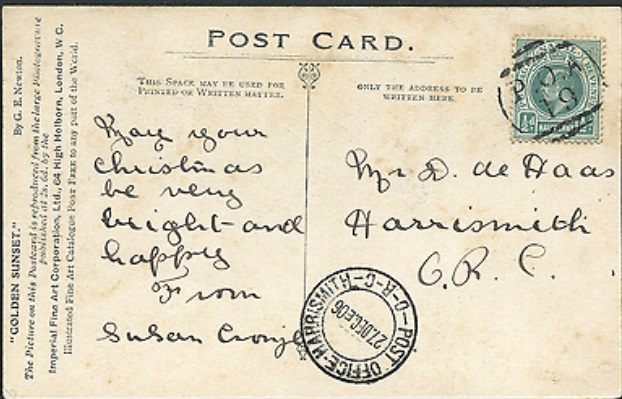 "GOLDEN SUNSET."
By G. E. Newton.
The Picture on this Postcard is reproduced from the large Photogravure
published at 2s. 6d. by the
Imperial Fine Art Corporation, Ltd., 64 High Holborn, London, W.C.
Illustrated Fine Art Catalogue Post Free to any part of the World.
POST CARD.
THIS SPACE MAY BE USED FOR
PRINTED OR WRITTEN MATTER.
ONLY THE ADDRESS TO BE
WRITTEN HERE.
May your
Christmas
be very
bright and
happy
From
Susan
Mr D. de Haas
Harrismith
O.R.C.
POST OFFICE-HARRISMITH-O-R-C
27.DEC.06